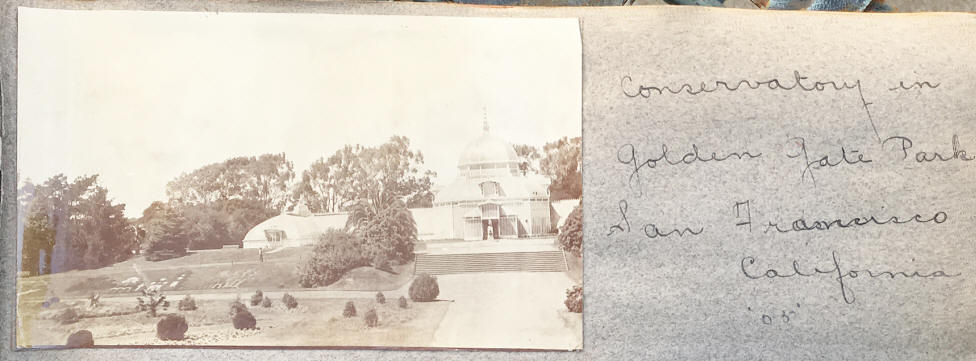 Conservatory in
Golden Gate Park
San Francisco
California
'05'